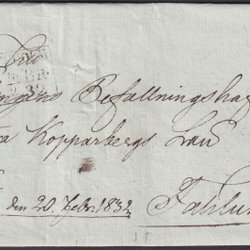 ngens Befallningshaf
a Kopparbergs Län
den 20. Febr. 1832
Fahlu